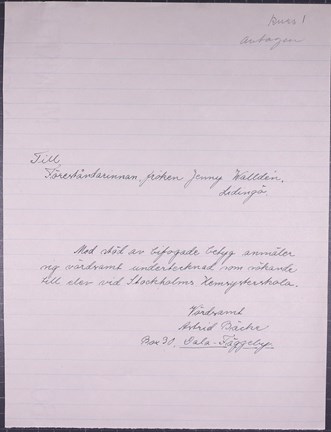 Kurs 1
Antagen
Till,
Föreståndarinnan, fröken Jenny Walldén,
Lidingö.
Med stöd av bifogade betyg anmäler
sig vördsamt undertecknad som sökande
till elev vid Stockholms Hemsysterskola.
Vördsamt
Astrid Bäcke
Box 30, Dala-Fäggeby.